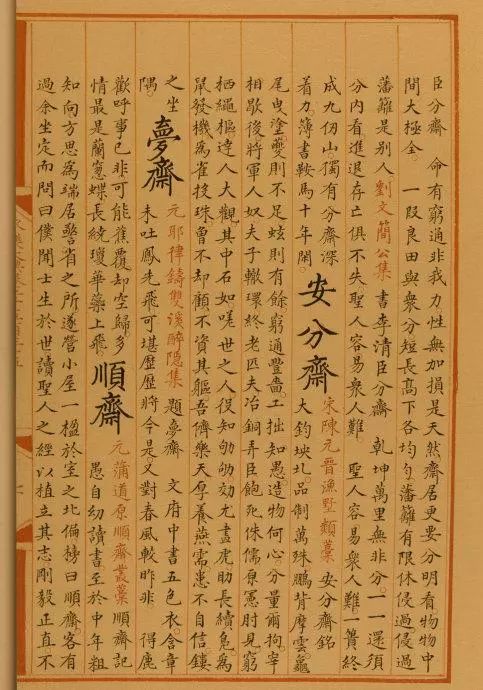 臣分齋　命有窮通非我力性無加損是天然齋居更要分明看物物中
間大極全　一段良田與衆分短長高下各均勻藩籬有限休侵過侵過
藩籬是别人劉文簡公集　書李清臣分齋　乾坤萬里無非分一一還須
分內看進退存亡俱不失聖人容易衆人難　聖人容易衆人難一簣終
成九仞山獨有分齋深
着力簿書鞍馬十年閒
安分齋
宋陳元晉漁墅類藁　安分齋銘
大鈞坱圠品制萬殊鵬背摩雲龜
尾曳塗夔則不足蚿則有餘窮通豐嗇工拙知愚造物何心分量爾拘宰
相歇後將軍人奴夫子轍環終老匹夫冶銅弄臣飽死侏儒原憲肘見窮
栖繩樞達人大觀其中石如嗟世之人役知劬劬効尤畫虎助長續鳬為
鼠發機為雀投珠曾不却顧不資其軀吾儕樂天厚養燕需患不自信鏤
之坐
隅
夢齋
元耶律鑄雙溪醉隱集　題夢齋　文府中書五色衣含章
未吐鳳先飛可堪歷歷將今是又對春風較昨非　得鹿
歡呼事已非可能蕉覆却空歸多
情最是蘭窻蝶長繞瓊華蘂上飛
順齋
元蒲道原順齋叢藁　順齋記
愚自幼讀書至於中年粗
知向方思為端居警省之所遂營小屋一楹於室之北偏榜曰順齋客有
過余坐定而問曰僕聞士生於世讀聖人之經以植立其志剛毅正直不